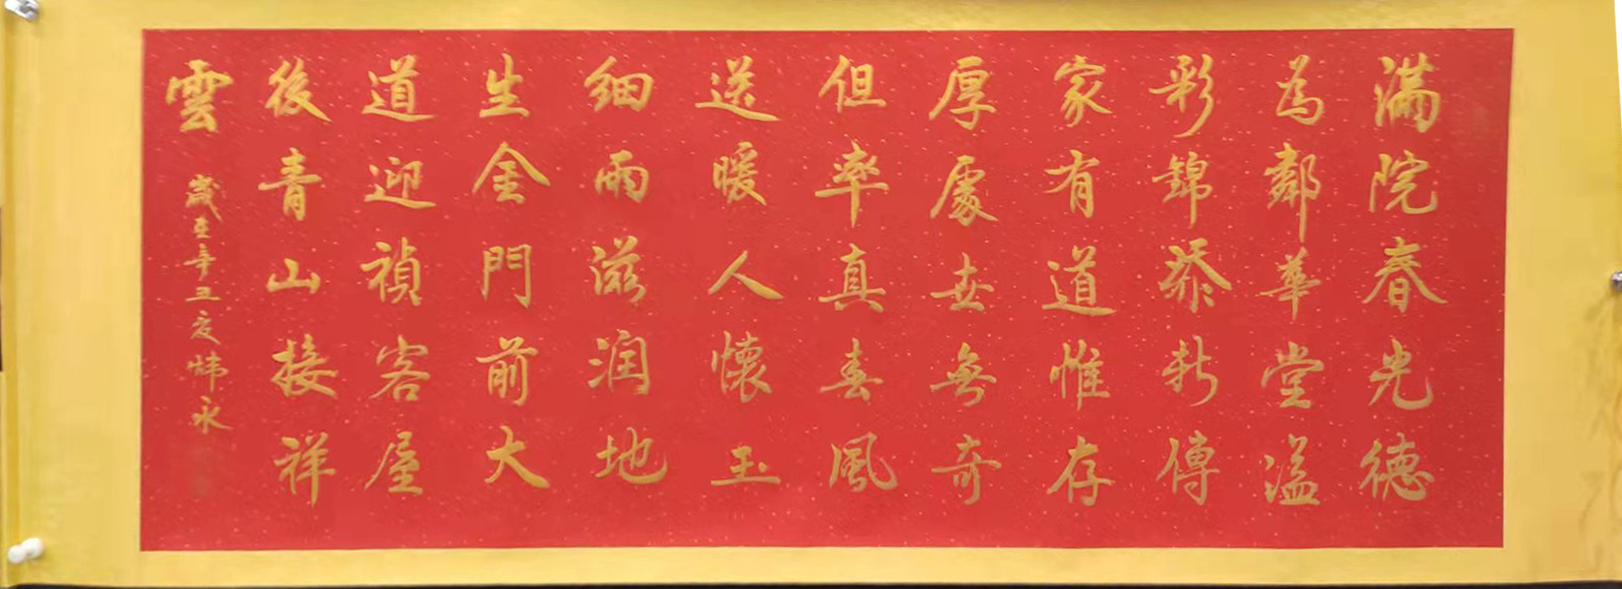 滿院春光德
為鄰華堂溢
彩錦添新傳
家有道惟存
厚處世無奇
但率真春風
送暖人懷玉
細雨滋润地
生金門前大
道迎禎客屋
後青山接祥
雲 歲在辛丑夏煒永